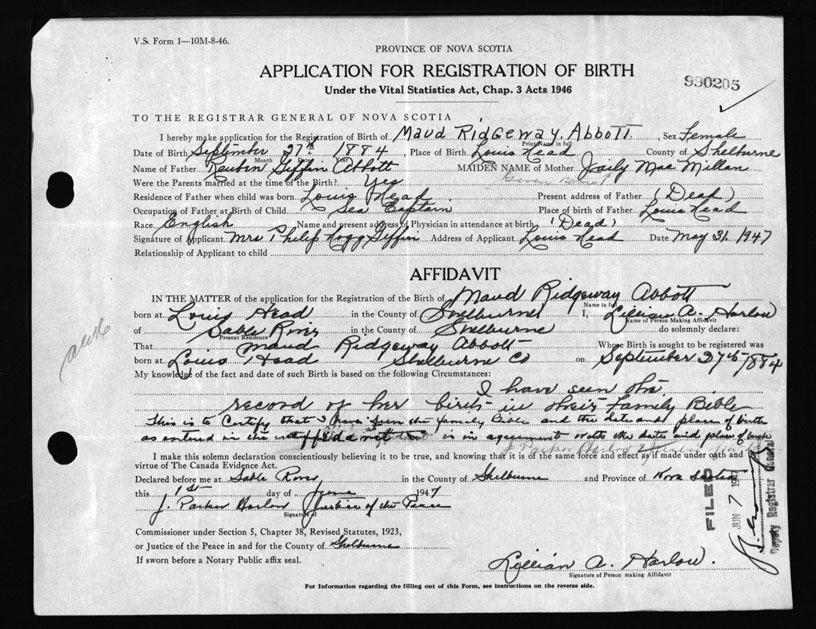 V.S. Form 1—10M-8-46.
PROVINCE OF NOVA SCOTIA
APPLICATION FOR REGISTRATION OF BIRTH
990205
Under the Vital Statistics Act, Chap. 3 Acts 1946
TO THE REGISTRAR GENERAL OF NOVA SCOTIA
I hereby make application for the Registration of Birth of Maud Ridgeway Abbott, Sex Female
Print Name in full
Date of Birth September 27th 1884 Place of Birth Louis Head County of Shelburne
Month Date Year
Name of Father Reuben Giffin Abbott MAIDEN NAME of Mother Mac Millan
Were the Parents married at the time of the Birth? Yes
Residence of Father when child was born. Louis Head Present address of Father (Dead)
Occupation of Father at Birth of Child Sea Captain Place of birth of Father Louis Head
Race English Name and present address of Physician in attendance at birth (Dead)
Signature of Applicant Mrs Philip Hogg Giffin Address of Applicant Louis Head Date May 31. 1947
Relationship of Applicant to child
AFFIDAVIT
IN THE MATTER of the application for the Registration of the Birth of Maud Ridgeway Abbott
Name in full
born at Louis Head in the County of Shelburne I, Lillian A. Harlow
Name of Person Making Affidavit
of Sable River in the County of Shelburne do solemnly declare:
Present Residence
That Maud Ridgeway Abbott Whose Birth is sought to be registered was
born at Louis Head Shelburne Co on September 27th 1884
My knowledge of the fact and date of such Birth is based on the following Circumstances:
I have seen the
record of her birth in their family Bible
This is to Certify that I have seen the family Bible and the date and place of birth
as entered in the affidavit is in agreement with the date and place of birth
I make this solemn declaration conscientiously believing it to be true, and knowing that it is of the same force and effect as if made under oath and
virtue of The Canada Evidence Act.
Declared before me at Sable River in the County of Shelburne and Province of Nova Scotia
this 1st day of June 1947
J. Parker Harlow Justice of the Peace
Signature
FILED
JUN 7 1947
Deputy Registrar General
Commissioner under Section 5, Chapter 38, Revised Statutes, 1923,
or Justice of the Peace in and for the County of Shelburne
If sworn before a Notary Public affix seal.
Lillian A. Harlow.
Signature of Person making Affidavit
For Information regarding the filling out of this Form, see instructions on the reverse side.